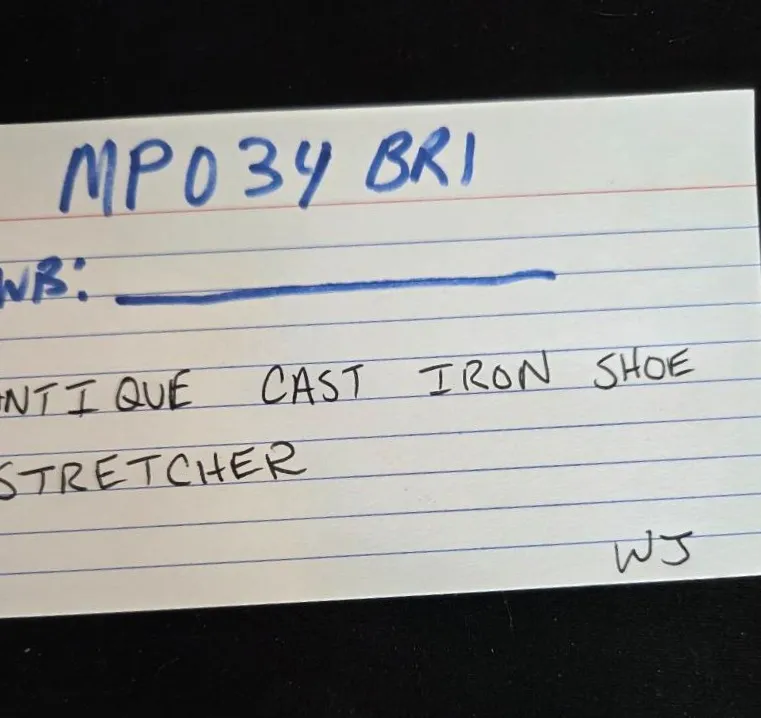 MP034 BRI
WB:
ANTIQUE CAST IRON SHOE
STRETCHER
WJ